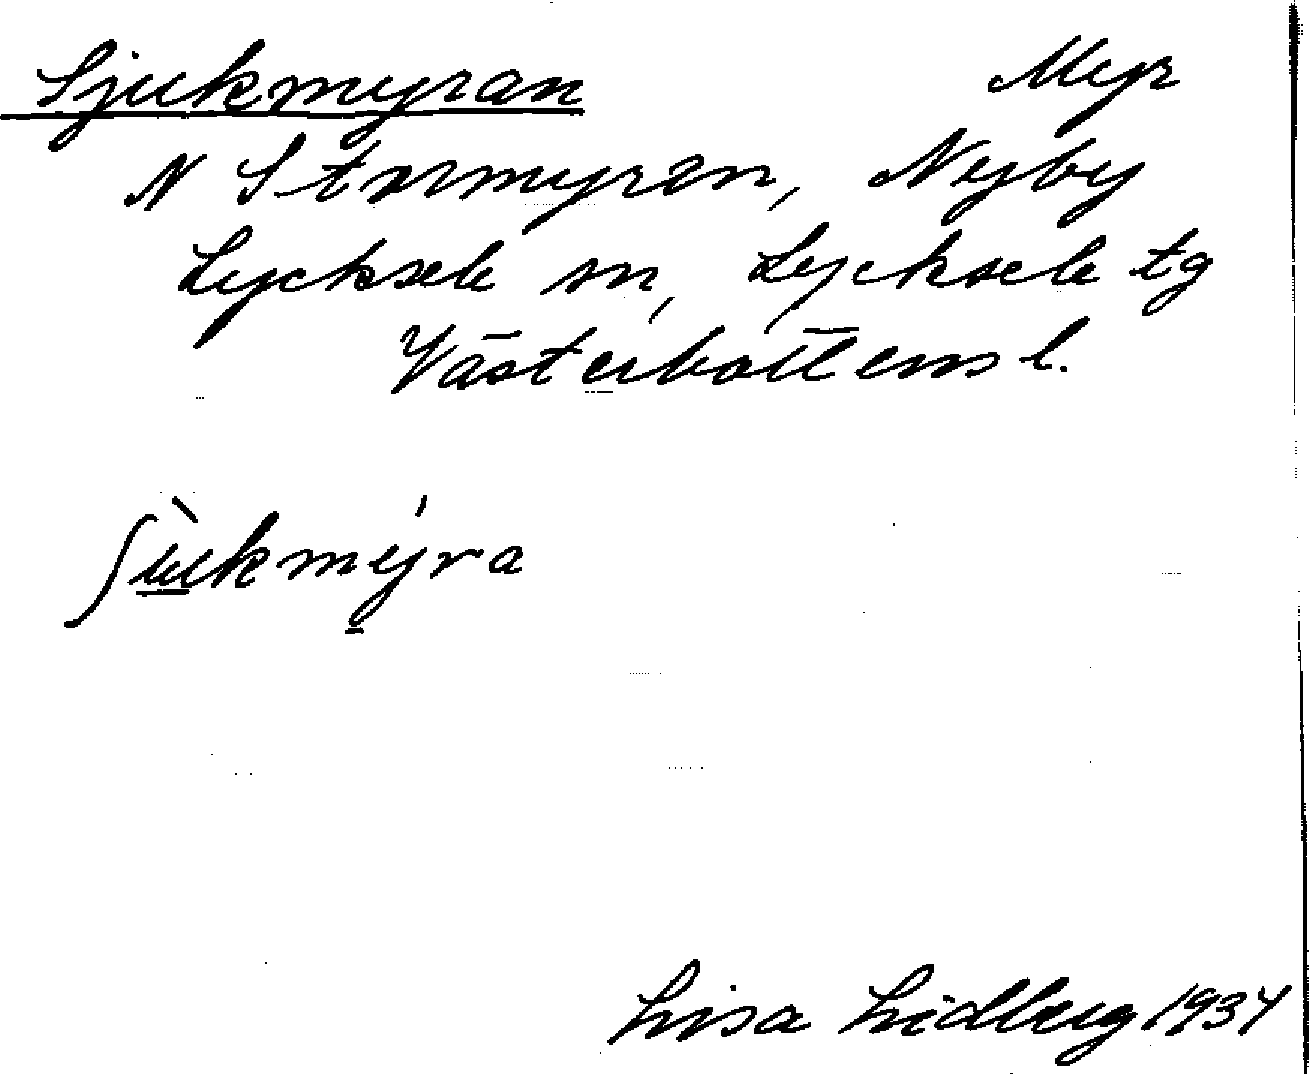 Sjukmyran Myr
N Stormyran, Nyby
Lycksele sn, Lycksele tg
Västerbottens l.
ʃùkmýra
Lisa Lidberg 1934